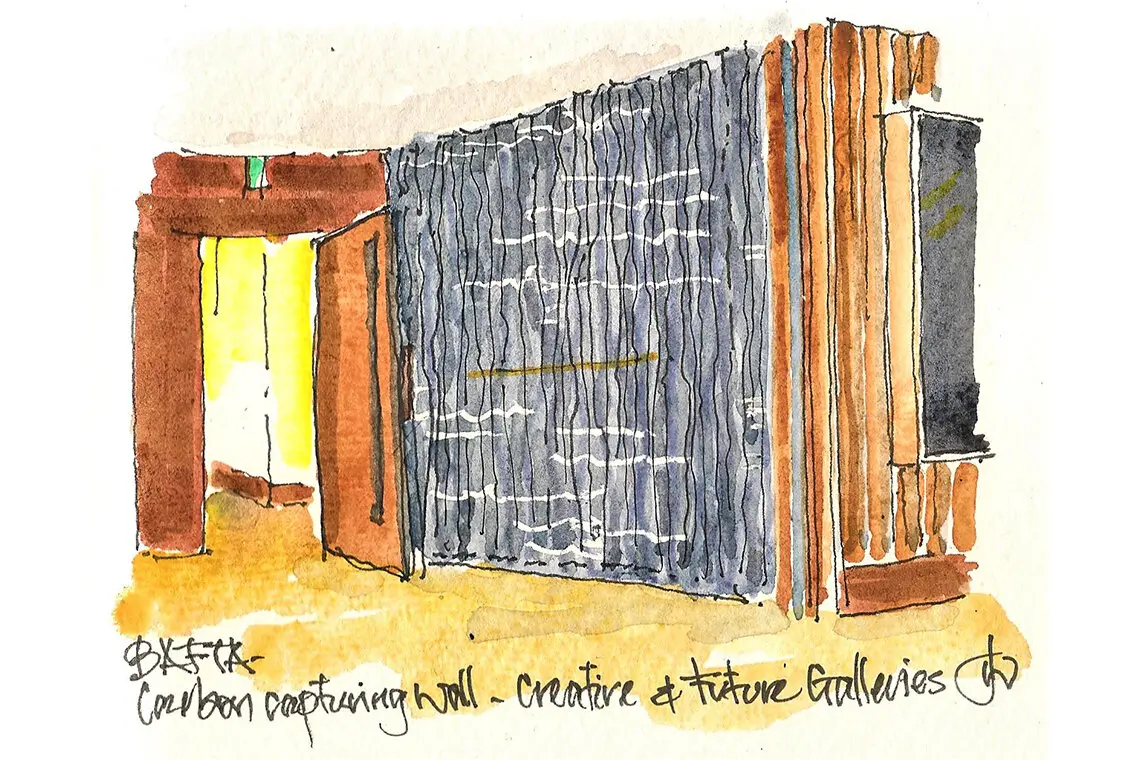 BAFTA-
Carbon capturing Wall - Creative & Future Galleries